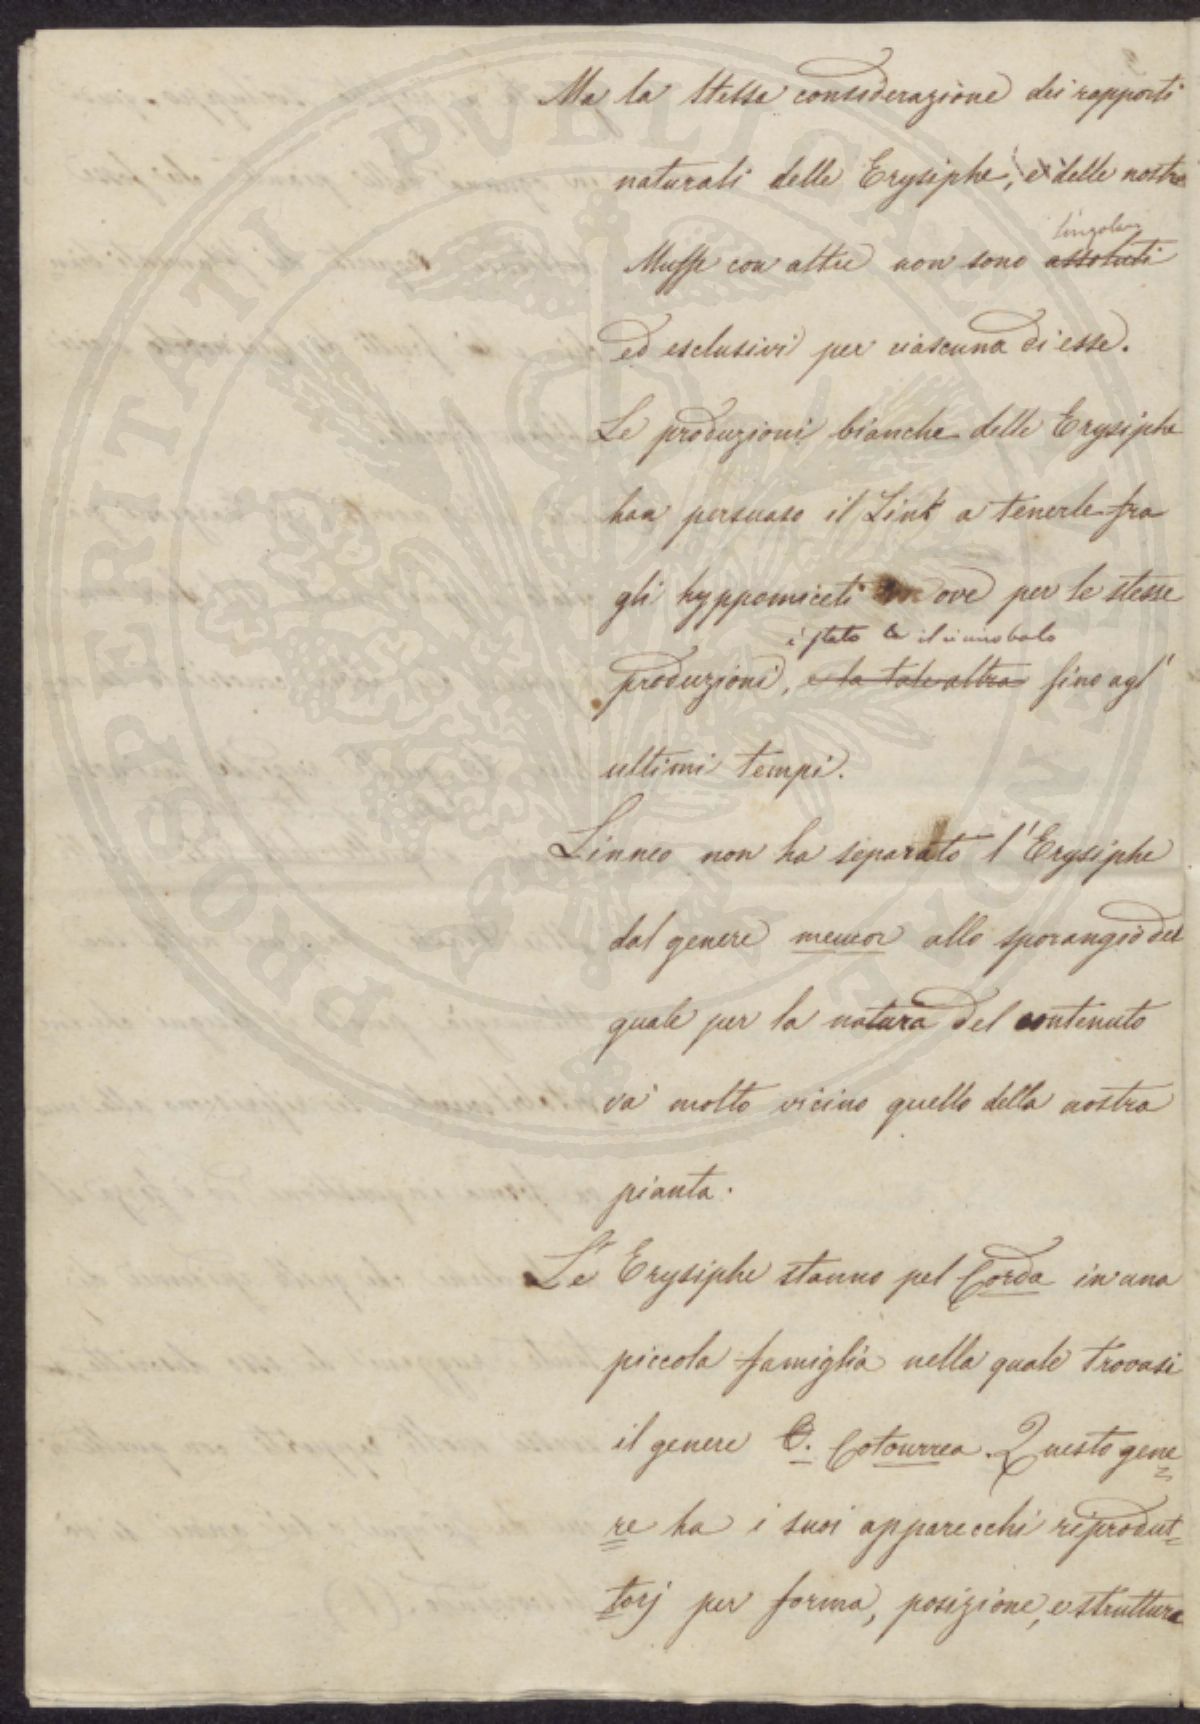 Ma la stessa considerazione dei rapporti
naturali delle Erysiphe, e delle nostre
singolari
Muffe con altre non sono assoluti
ed esclusivi per ciascuna di esse.
Le produzioni bianche delle Erysiphe
han persuaso il Link a tenerle fra
gli hyppomiceti ove per le stesse
è stato il
produzioni, fino agl'
ultimi tempi.
Linneo non ha separato l'Erysiphe
dal genere mucor allo sporangio del
quale per la natura del contenuto
va molto vicino quello della nostra
pianta.
Le Erysiphe stanno pel Corda in una
piccola famiglia nella quale trovasi
il genere Questo gene
re ha i suoi apparecchi riprodut=
torj per forma, posizione, e struttura
PROSPERITATI PVBLICAE